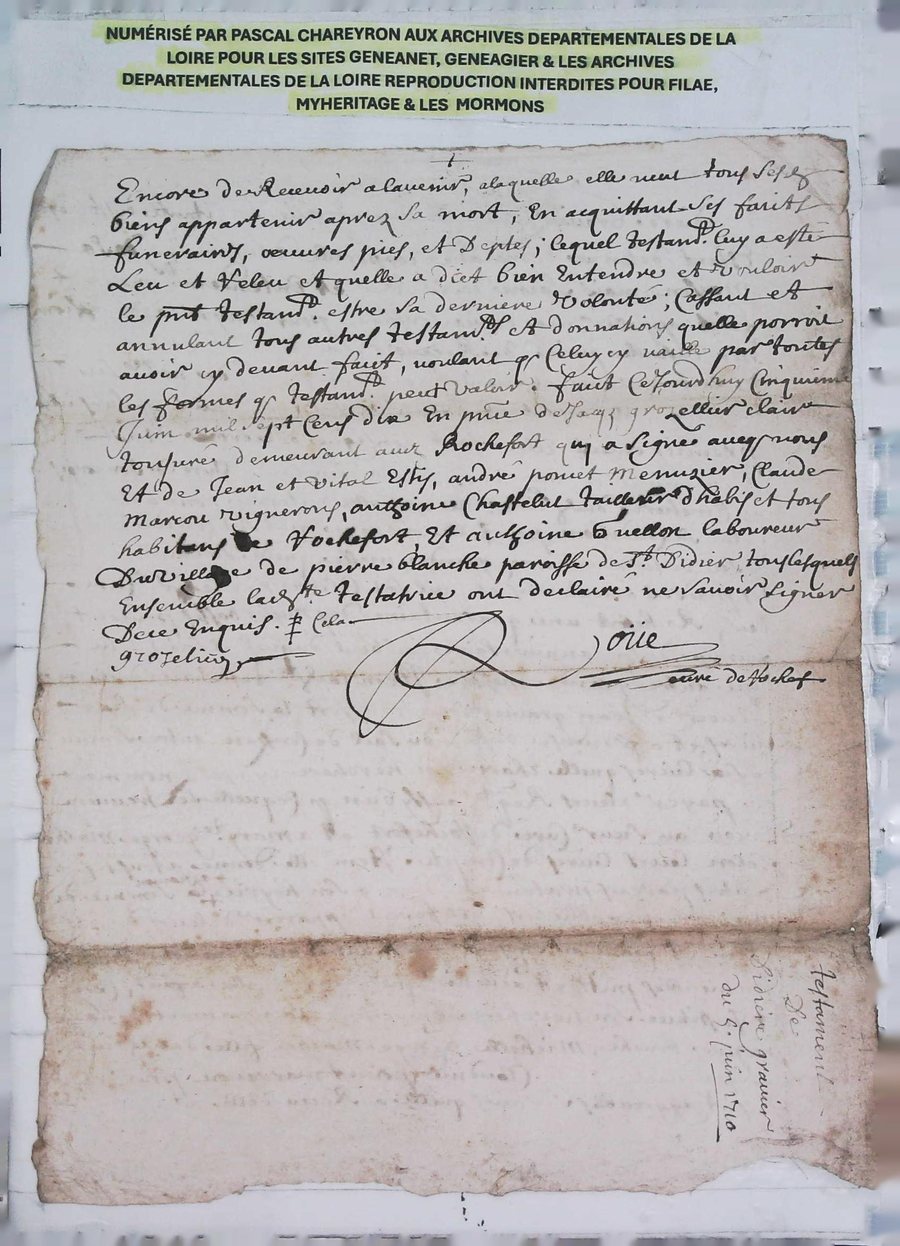 NUMÉRISÉ PAR PASCAL CHAREYRON AUX ARCHIVES DEPARTEMENTALES DE LA
LOIRE POUR LES SITES GENEANET, GENEAGIER & LES ARCHIVES
DEPARTEMENTALES DE LA LOIRE REPRODUCTION INTERDITES POUR FILAE,
MYHERITAGE & LES MORMONS
Encore de Recevoir a lavenir, a laquelle elle veut tous ses
biens appartenir aprez sa mort, En acquittant ses faicts
funeraires, oeuvres pies, et Deptes; lequel testand. luy a esté
Leu et Releu et quelle a dict bien Entendre et vouloir
le pnt testand. estre sa derniere volonté; Cassant et
annulant tous autres testands et donnations quelle porroit
avoir cy devant faict, voulant q Celuy cy vaille par toutes
les formes q testand. peut valoir. faict Cejourdhuy Cinquieme
Juin mil sept Cens dix En pnce de Jacq grozellier clair
tonsuré demeurant audt Rochefort qui a signé avecq nous
Et de Jean et vital Estis, andré poncet menuzier, Claude
Marcou vignerons, anthoine Chastelut tailleur dhabis et tous
habitans de Rochefort Et anthoine Guellon laboureur
Du village de pierre blanche paroisse de St Didier tous lesquels
Ensemble ladte testatrice ont declairé ne savoir signer
De ce Enquis.
grozelier
curé de Rochef
testament
De
gravier
du 5. juin 1710